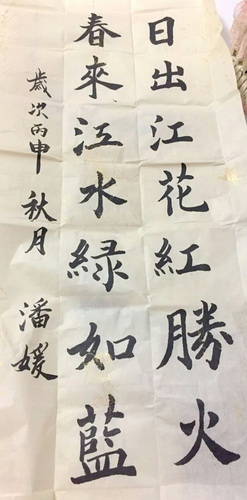 日出江花紅勝火
春來江水綠如藍
歲次丙申秋月 潘媛